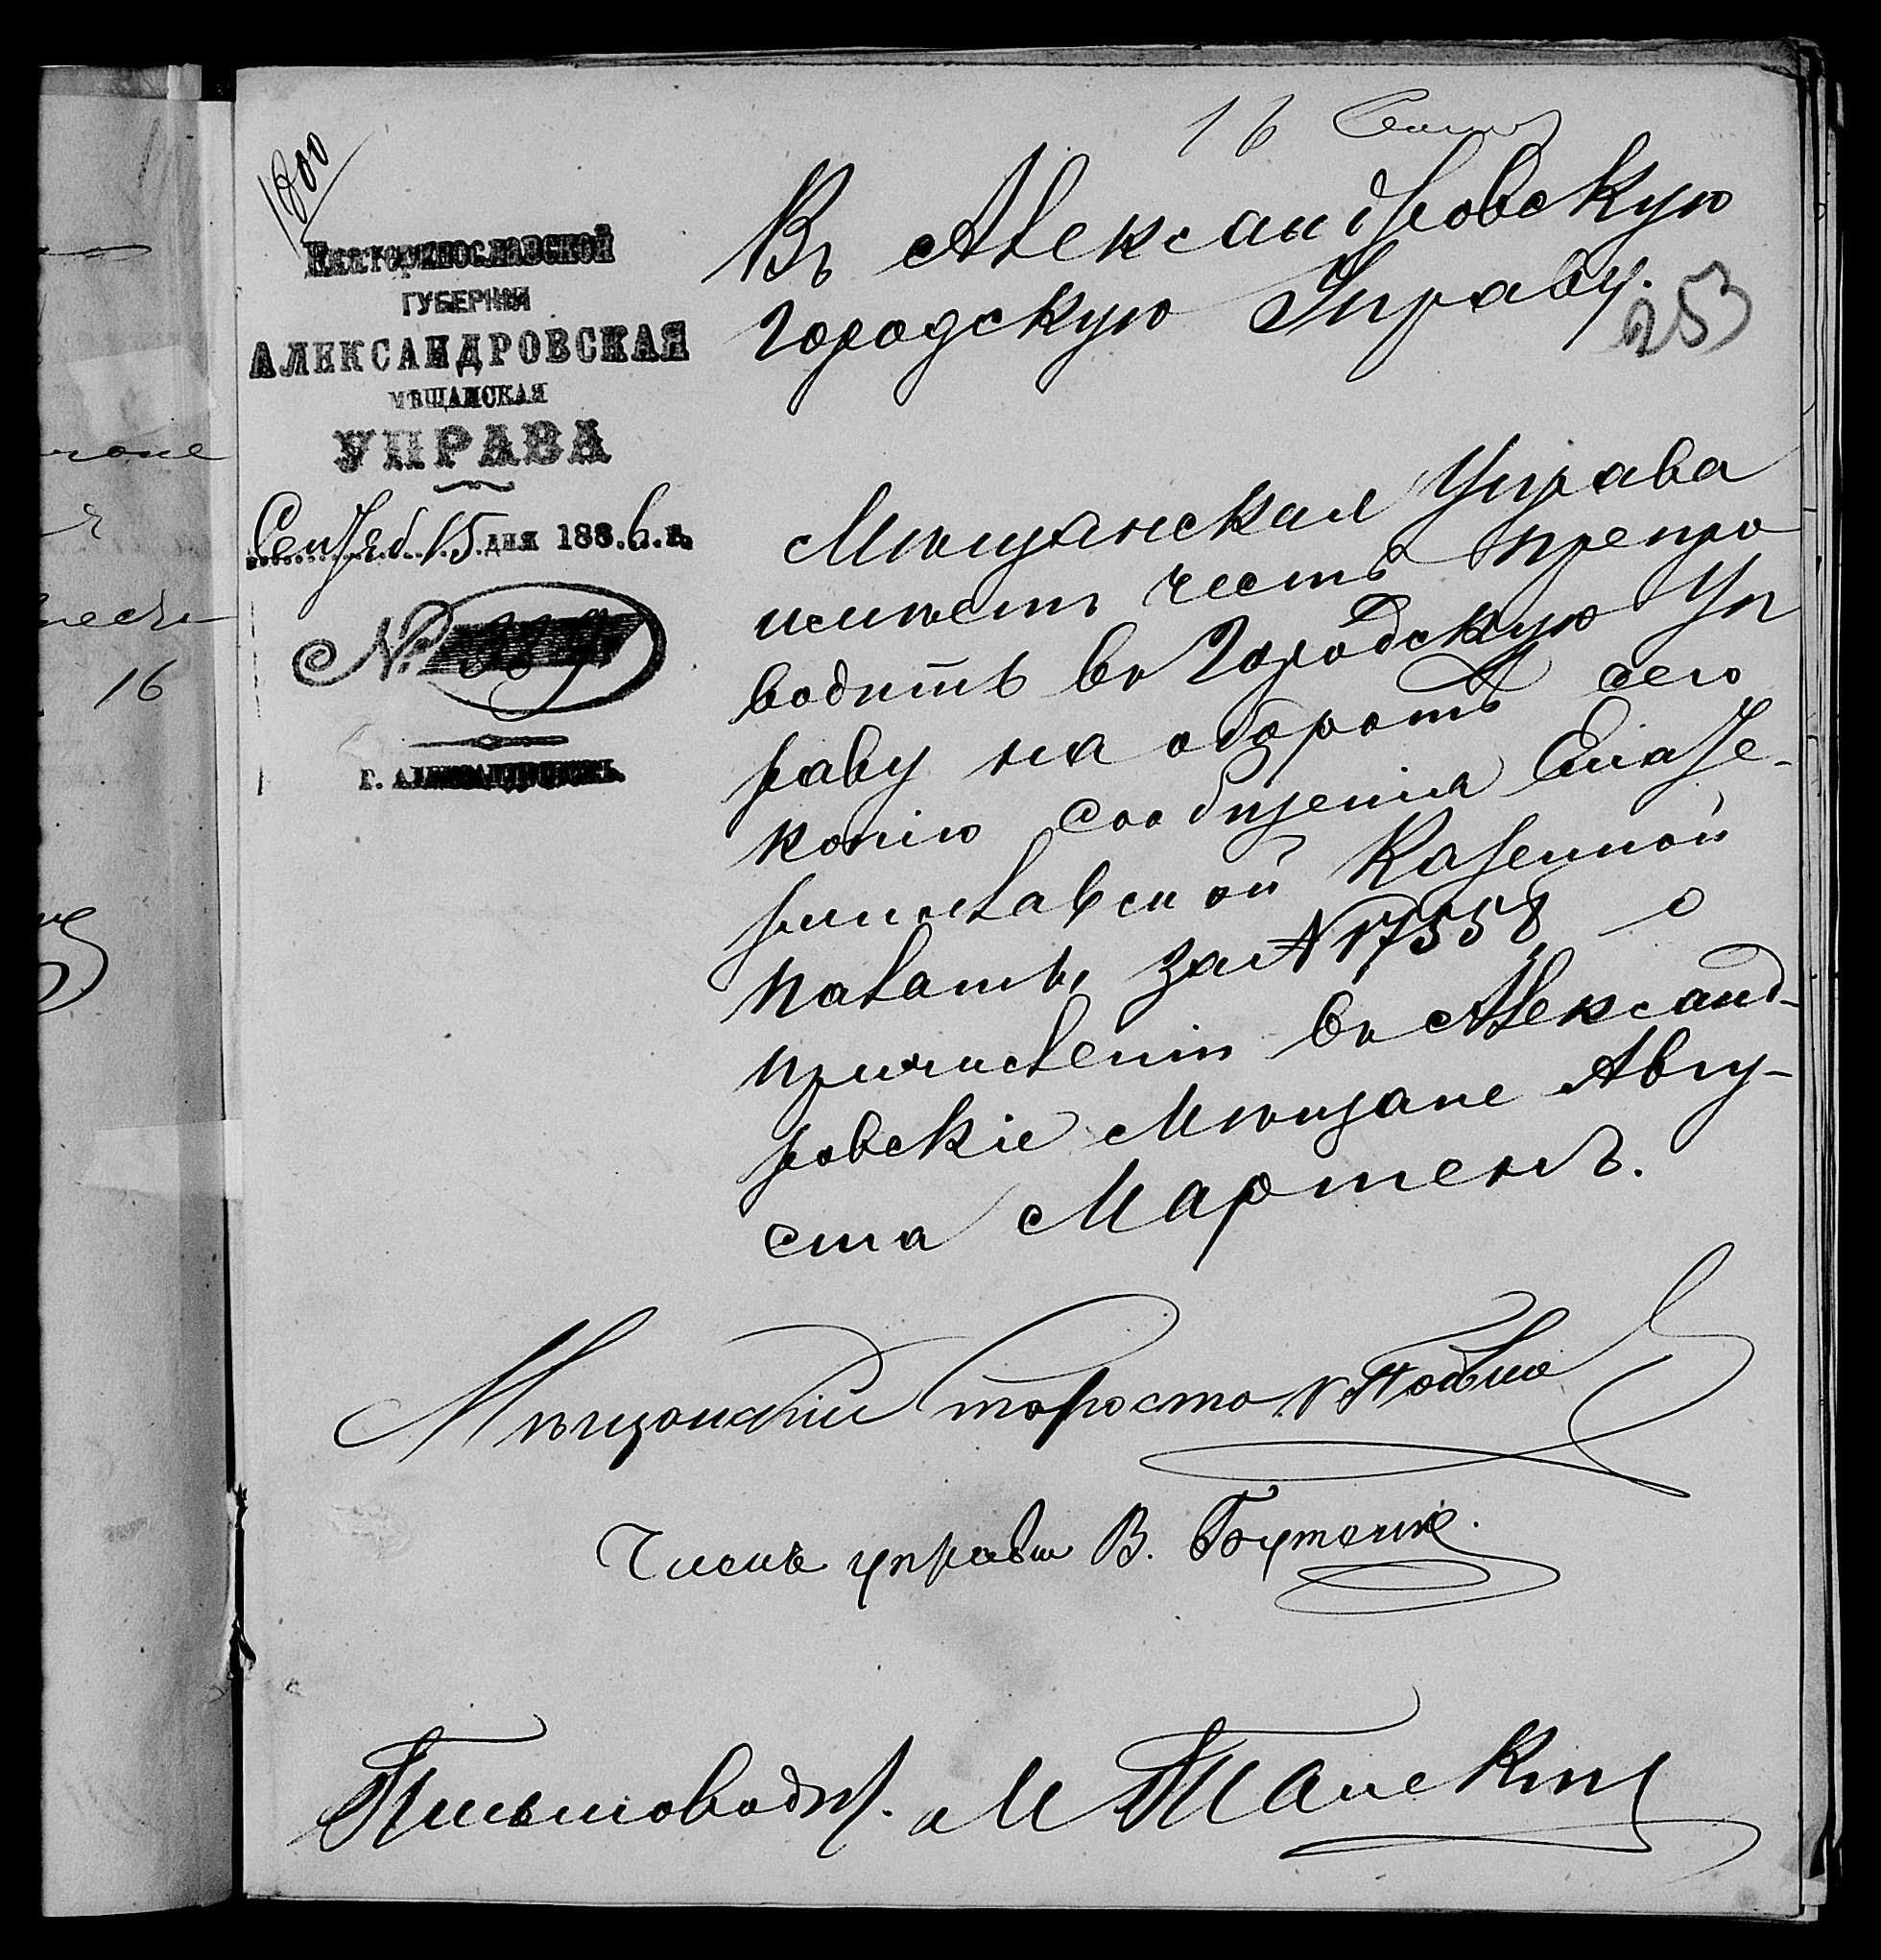 16 Сент
1800
ЕКАТЕРИНОСЛАВСКОЙ
ГУБЕРНІИ
АЛЕКСАНДРОВСКАЯ
МѢЩАНСКАЯ
УПРАВА
Сентяб. 15 дня 1886 г.
№
Г. АЛЕКСАНДРОВСКЪ.
Въ Александровскую
Городскую Управу.
253
Мѣщанская Управа
имѣетъ честь препро
водить въ Городскую Уп
раву на оборотѣ сего
копію сообщенія Екате-
ринославской Казенной
палаты, за № 17558 о
причисленіи въ Александ-
ровскіе Мѣщане Авгу-
ста Мартенъ.
Мѣщанскій Староста
Членъ управы В. Бутенко.
Письмоводит. М
16